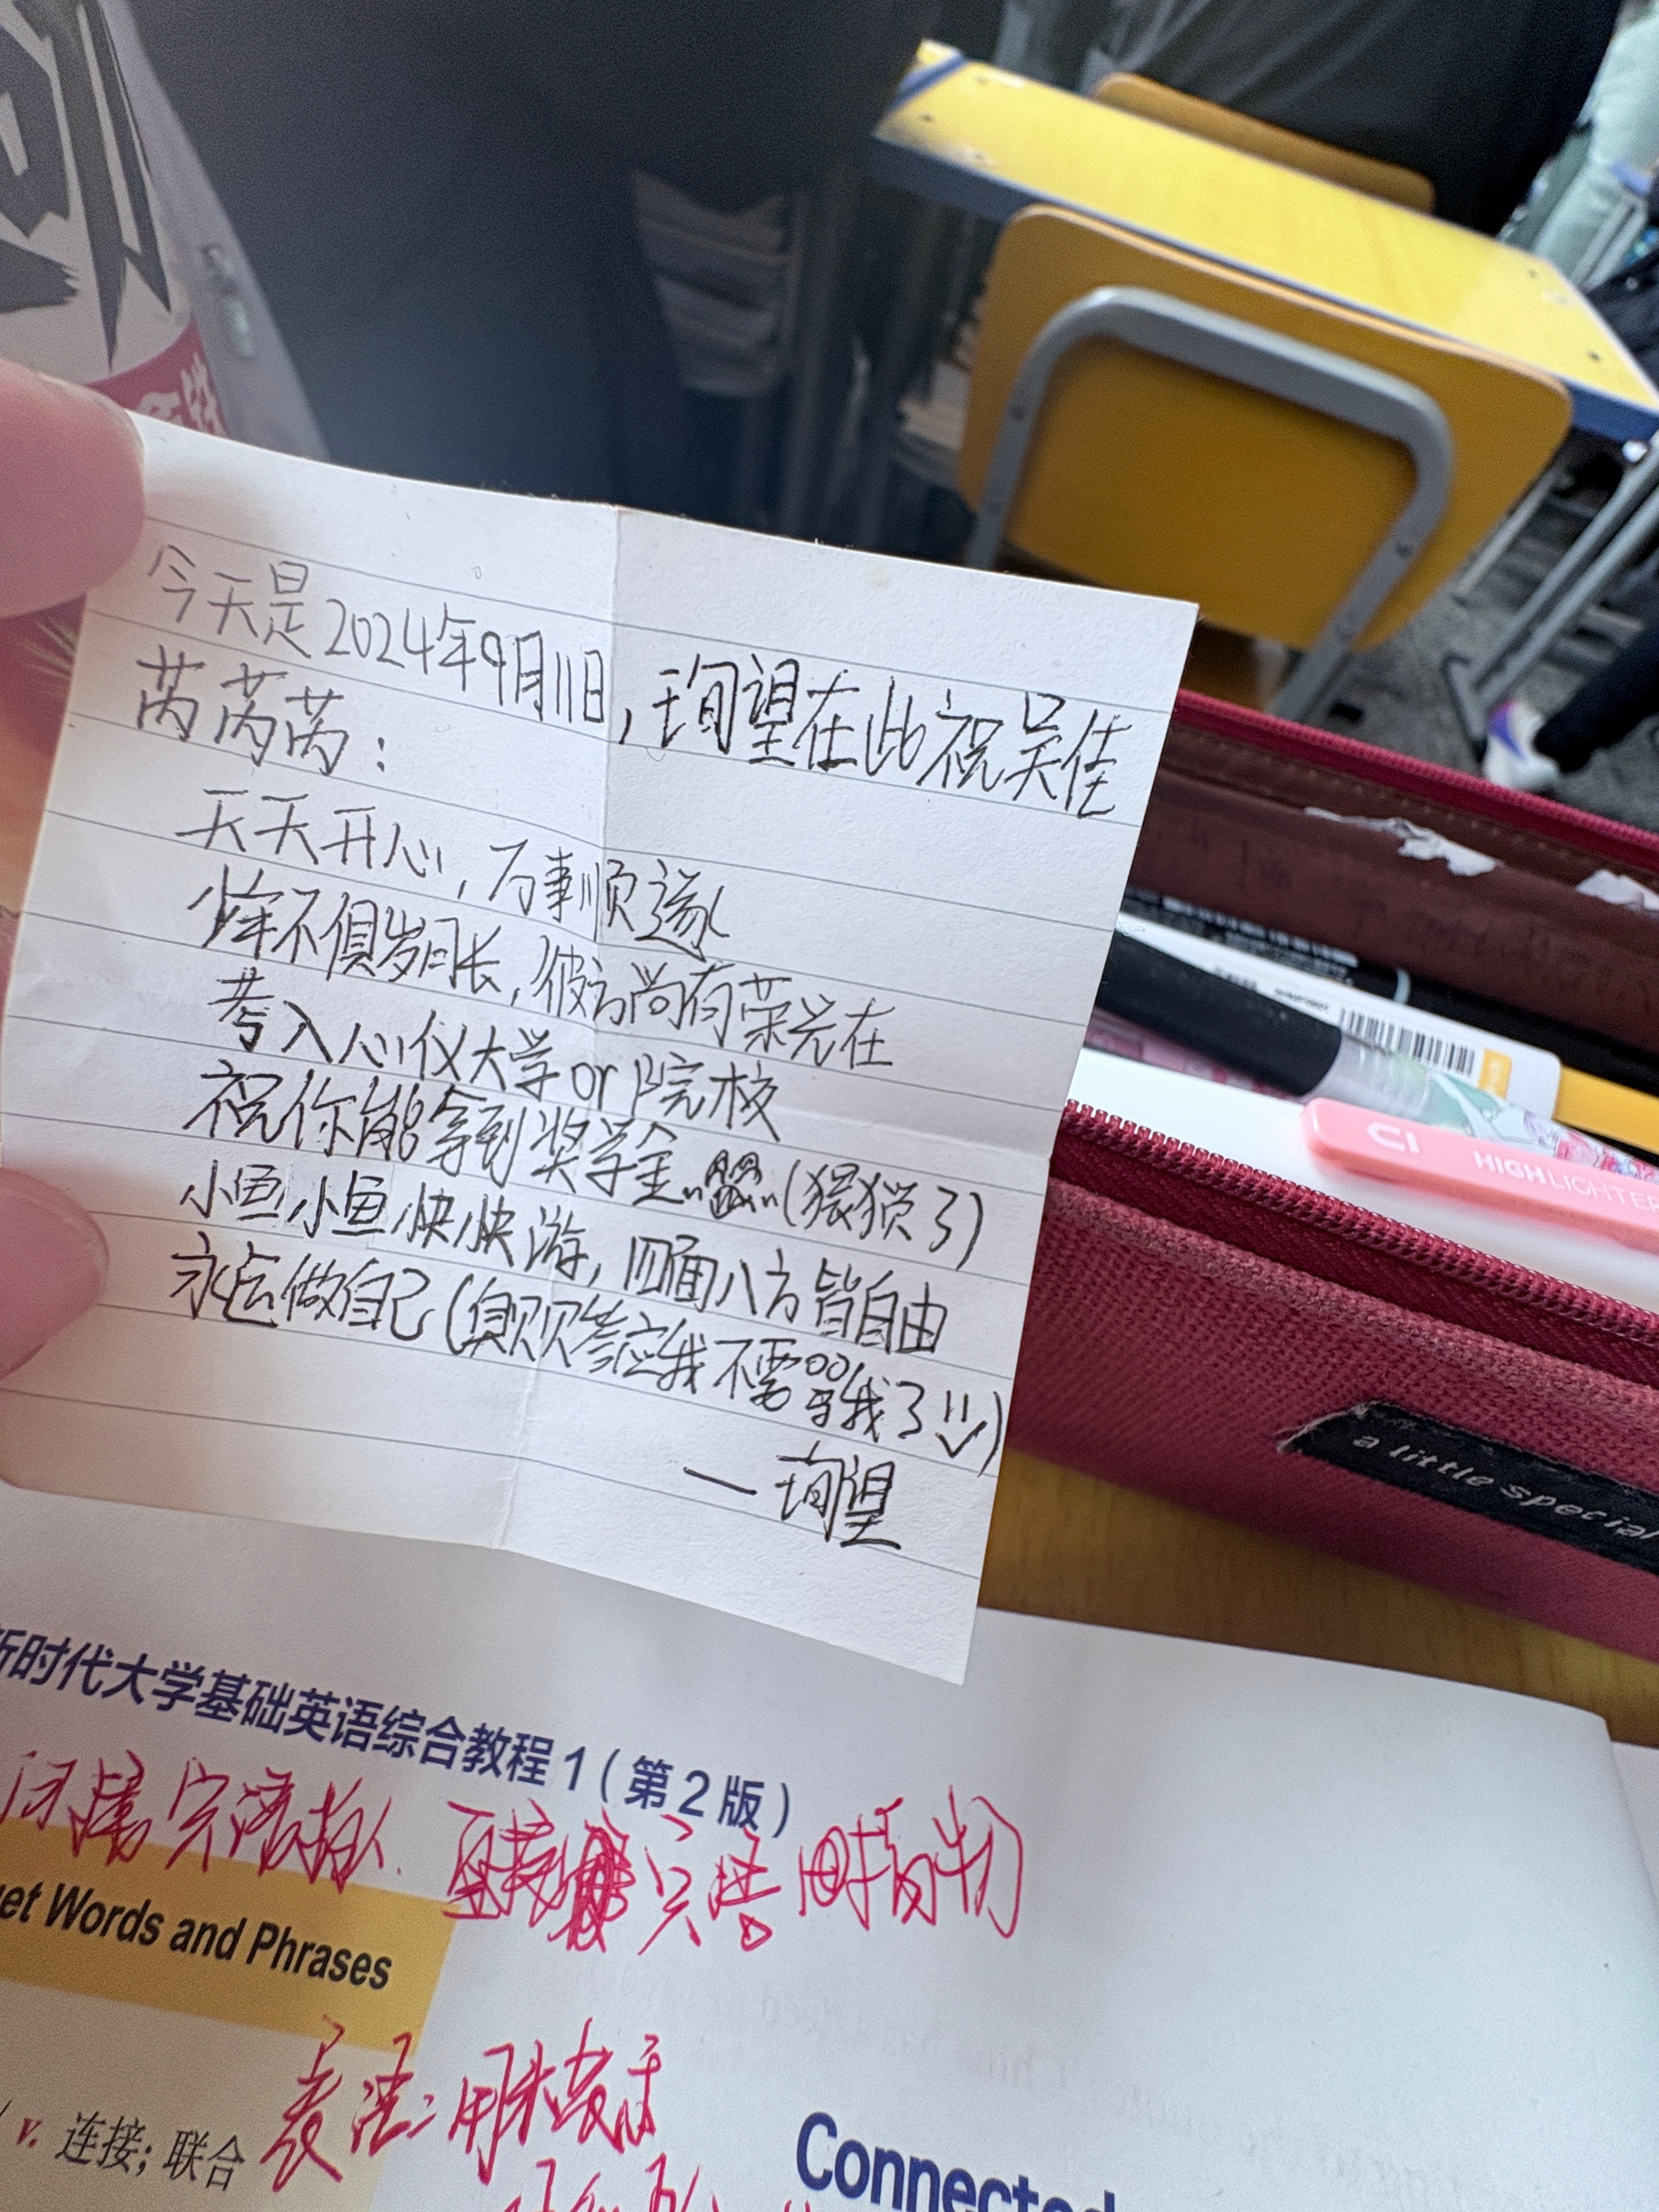 今天是2024年9月11日,珣望在此祝吴佳
芮芮芮:
天天开心,万事顺遂
少年不惧岁月长,彼方尚有荣光在
考入心仪大学or院校
祝你能拿到奖学金..(猥琐了)
小鱼小鱼快快游,四面八方皆自由
永远做自己(臭贝贝答应我不需骂我了)
—珣望
CI HIGHLIGHTER
a little special
新时代大学基础英语综合教程1(第2版)
间接宾语指人.
直接宾语 指物
et Words and Phrases
表语:用来表示
v. 连接;联合
Connected